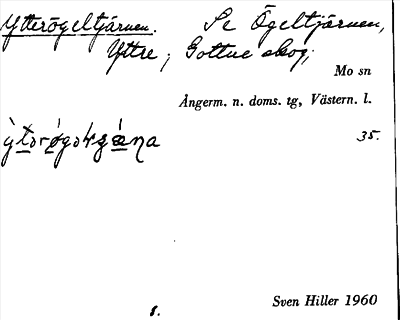 Ytterögeltjärnen. Se Ögeltjärnen,
Yttre, Gottne skog,
Mo sn
Ångerm. n. doms. tg, Västern. l.
35.
s.
Sven Hiller 1960